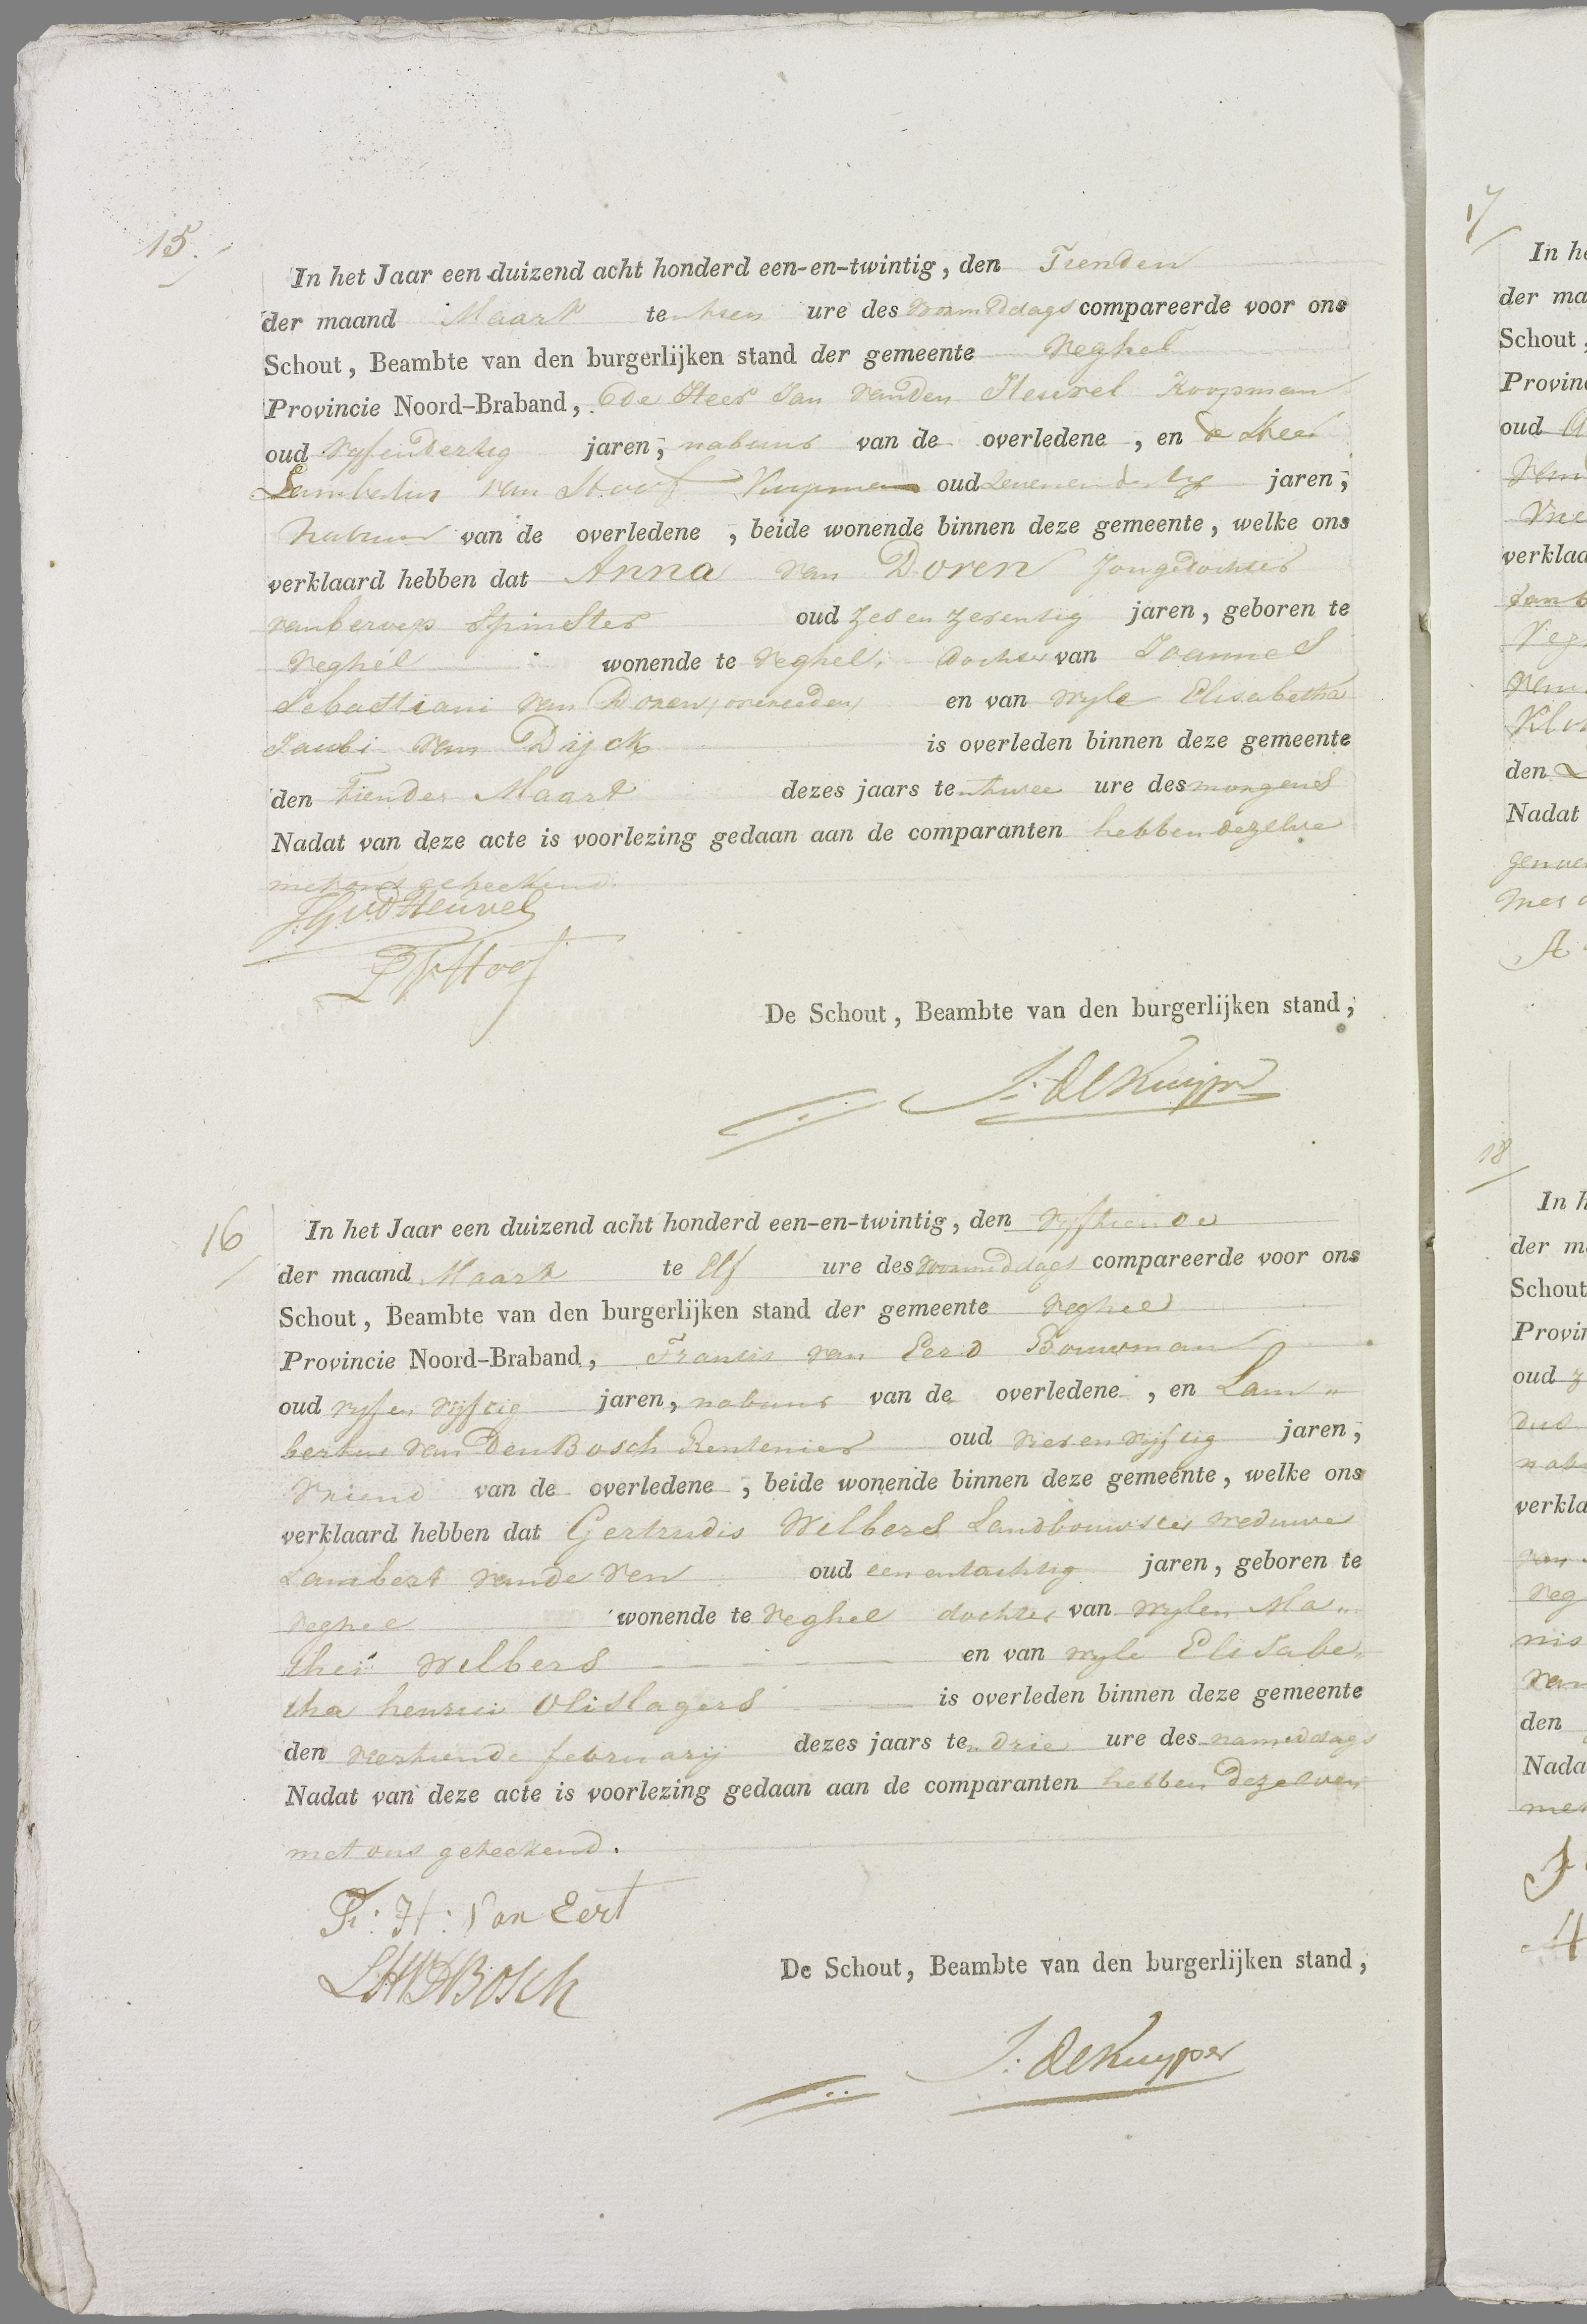 15
In het Jaar een duizend acht honderd een-en-twintig, den Tienden
der maand Maart ten tien ure des voormiddags compareerde voor ons
Schout, Beambte van den burgerlijken stand der gemeente Veghel
Provincie Noord-Braband, de Heer Jan vanden Heuvel Koopman
oud vyfendertig jaren, nabuur van de overledene, en de Heer
Lambertus van Hooff Koopman oud zevenendertig jaren,
Nabuur van de overledene, beide wonende binnen deze gemeente, welke ons
verklaard hebben dat Anna van Doren Jongedochter
van beroep Spinster oud zes en zeventig jaren, geboren te
Veghel wonende te Veghel, dochter van Joannes
Sebastiani van Doren, overleden, en van wyle Elisabetha
Jacobi van Dijck is overleden binnen deze gemeente
den Tiender Maart dezes jaars ten twee ure des morgens
Nadat van deze acte is voorlezing gedaan aan de comparanten hebben dezelve
met ons geteekend.
JGvdHeuvel
LVHoof
De Schout, Beambte van den burgerlijken stand,
J: de Kuijper
16
In het Jaar een duizend acht honderd een-en-twintig, den vyftiende
der maand Maart te Elf ure des voormiddags compareerde voor ons
Schout, Beambte van den burgerlijken stand der gemeente Veghel
Provincie Noord-Braband, Francis van Eerd Bouwman
oud vyf en vijftig jaren, nabuur van de overledene, en Lam"
bertus van Den Bosch Rentenier oud vier en vijftig jaren,
Vriend van de overledene, beide wonende binnen deze gemeente, welke ons
verklaard hebben dat Gertrudis Wilbers Landbouwster weduwe
Lambert vande Ven oud een entachtig jaren, geboren te
Veghel wonende te Veghel dochter van wylen Ma"
thei Wilbers en van wyle Elisabe"
tha henrici Olislagers is overleden binnen deze gemeente
den veertiende februarij dezes jaars ten drie ure des namiddags
Nadat van deze acte is voorlezing gedaan aan de comparanten hebben dezelven
met ons geteekend.
Fr: H: Van Eert
LHVDBosch
De Schout, Beambte van den burgerlijken stand,
J: de Kuyper
17
In h
der ma
Schout,
Provin
oud
verklaa
den
Nadat
18
In h
der m
Schout
Provin
oud
verkla
den
Nada